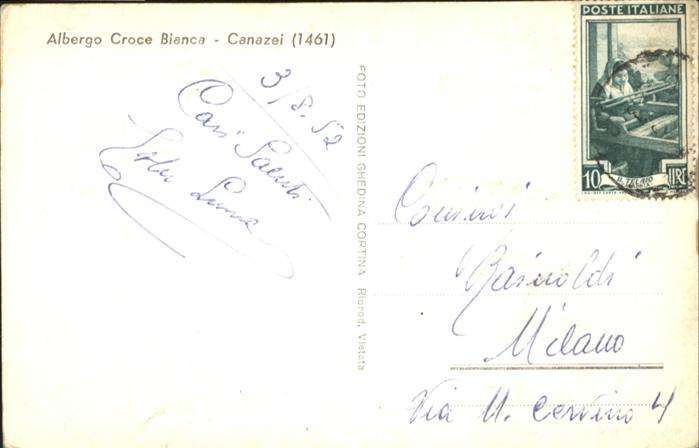 Albergo Croce Bianca - Canazei (1461)
3/8.52
Cari Saluti
FOTO EDIZIONI GHEDINA CORTINA Riprod. Vietata
POSTE ITALIANE
10 IL TELAIO LIRE
Milano
Via M. Cervino 4